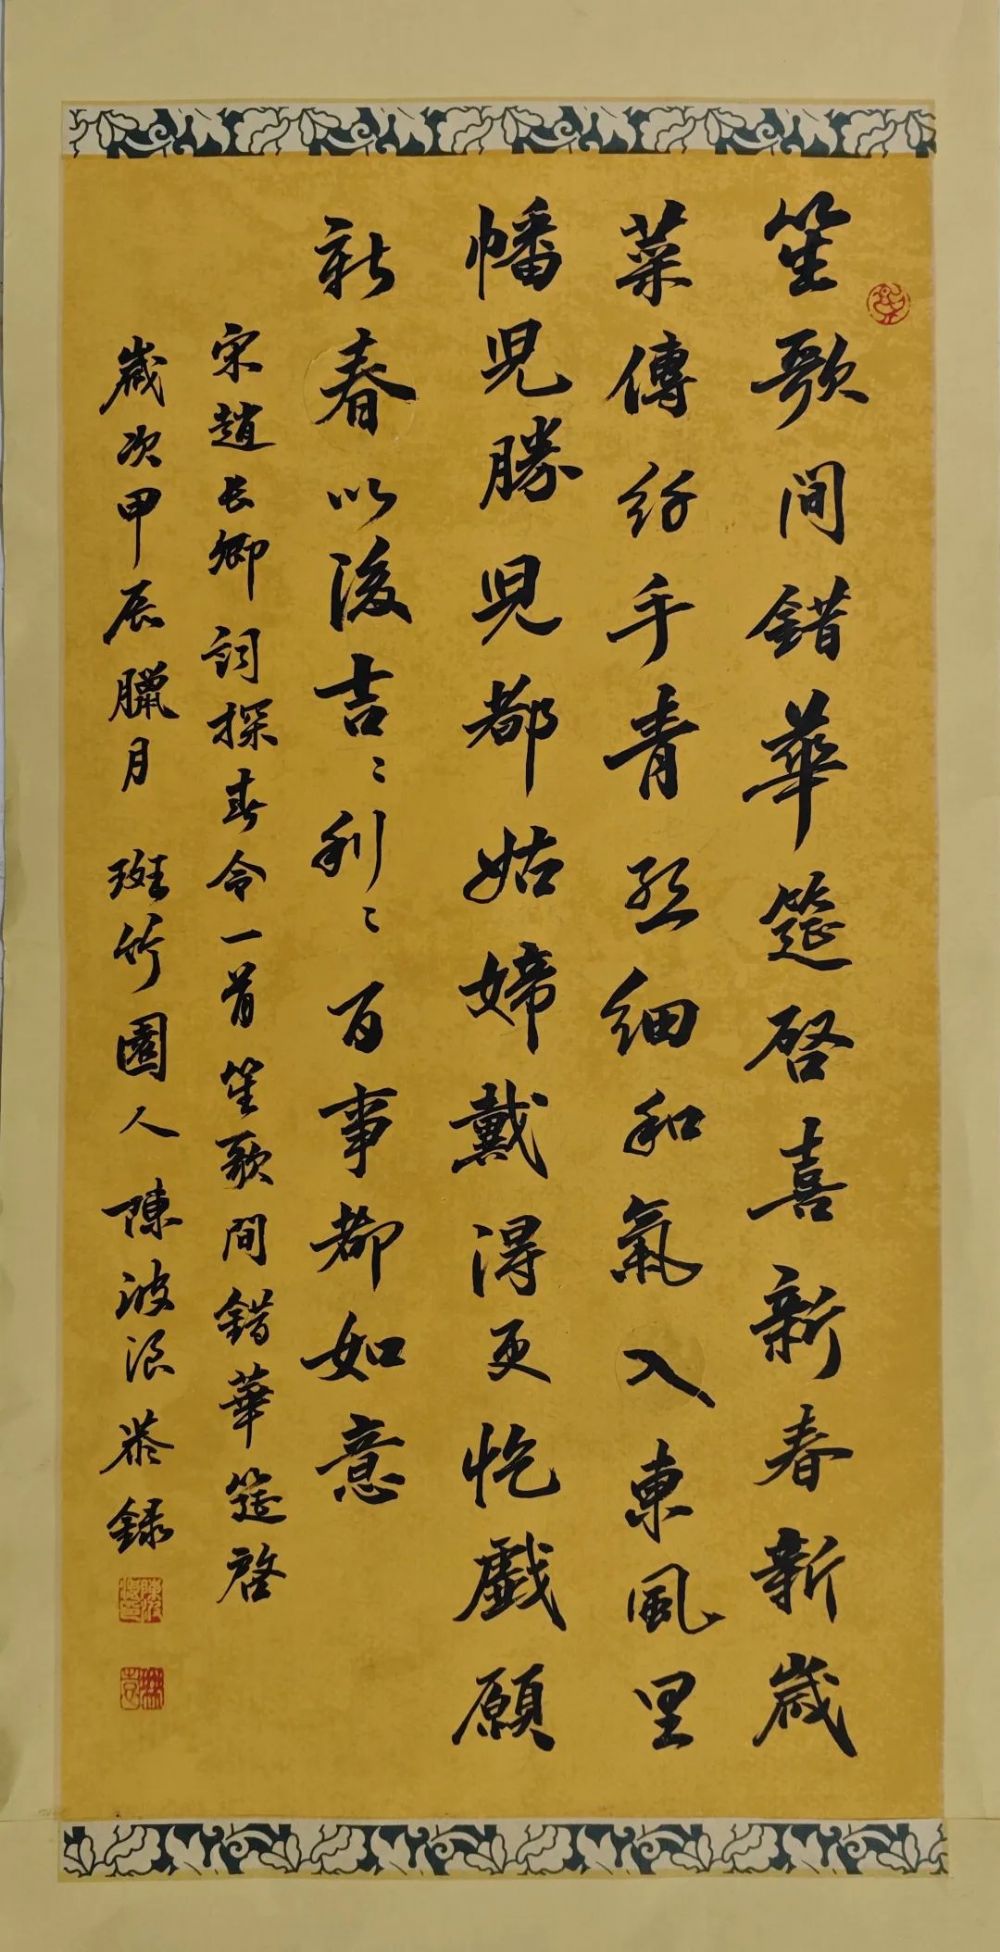 笙歌間錯華筵啓喜新春新歲
菜傳纖手青絲細和氣入東風里
幡兒勝兒都姑媂戴得更忔戲願
新春以後吉〻利〻百事都如意
宋趙長卿詞探春令一首笙歌間錯華筵啓
歲次甲辰臘月 斑竹園人陳波浪恭録